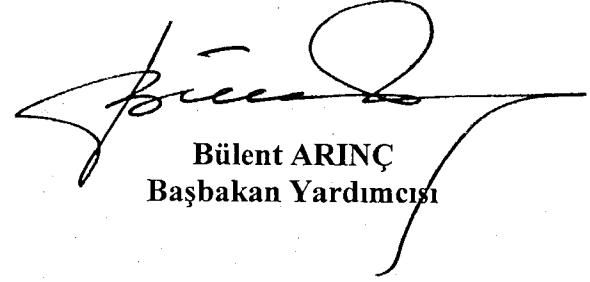 Bülent ARINÇ
Başbakan Yardımcısı